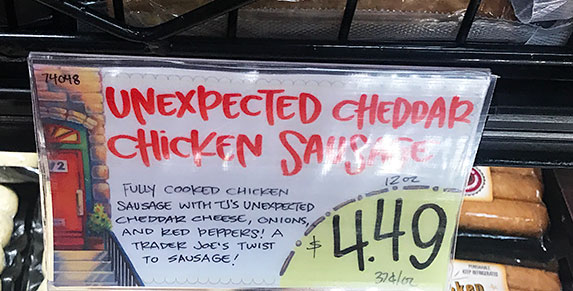 74048
UNEXPECTED CHEDDAR
CHICKEN SAUSAGE
72
FULLY COOKED CHICKEN
SAUSAGE WITH TJ'S UNEXPECTED
CHEDDAR CHEESE, ONIONS,
AND RED PEPPERS! A
TRADER JOE'S TWIST
TO SAUSAGE!
12 oz
$4.49
37¢/oz
KEEP REFRIGERATED